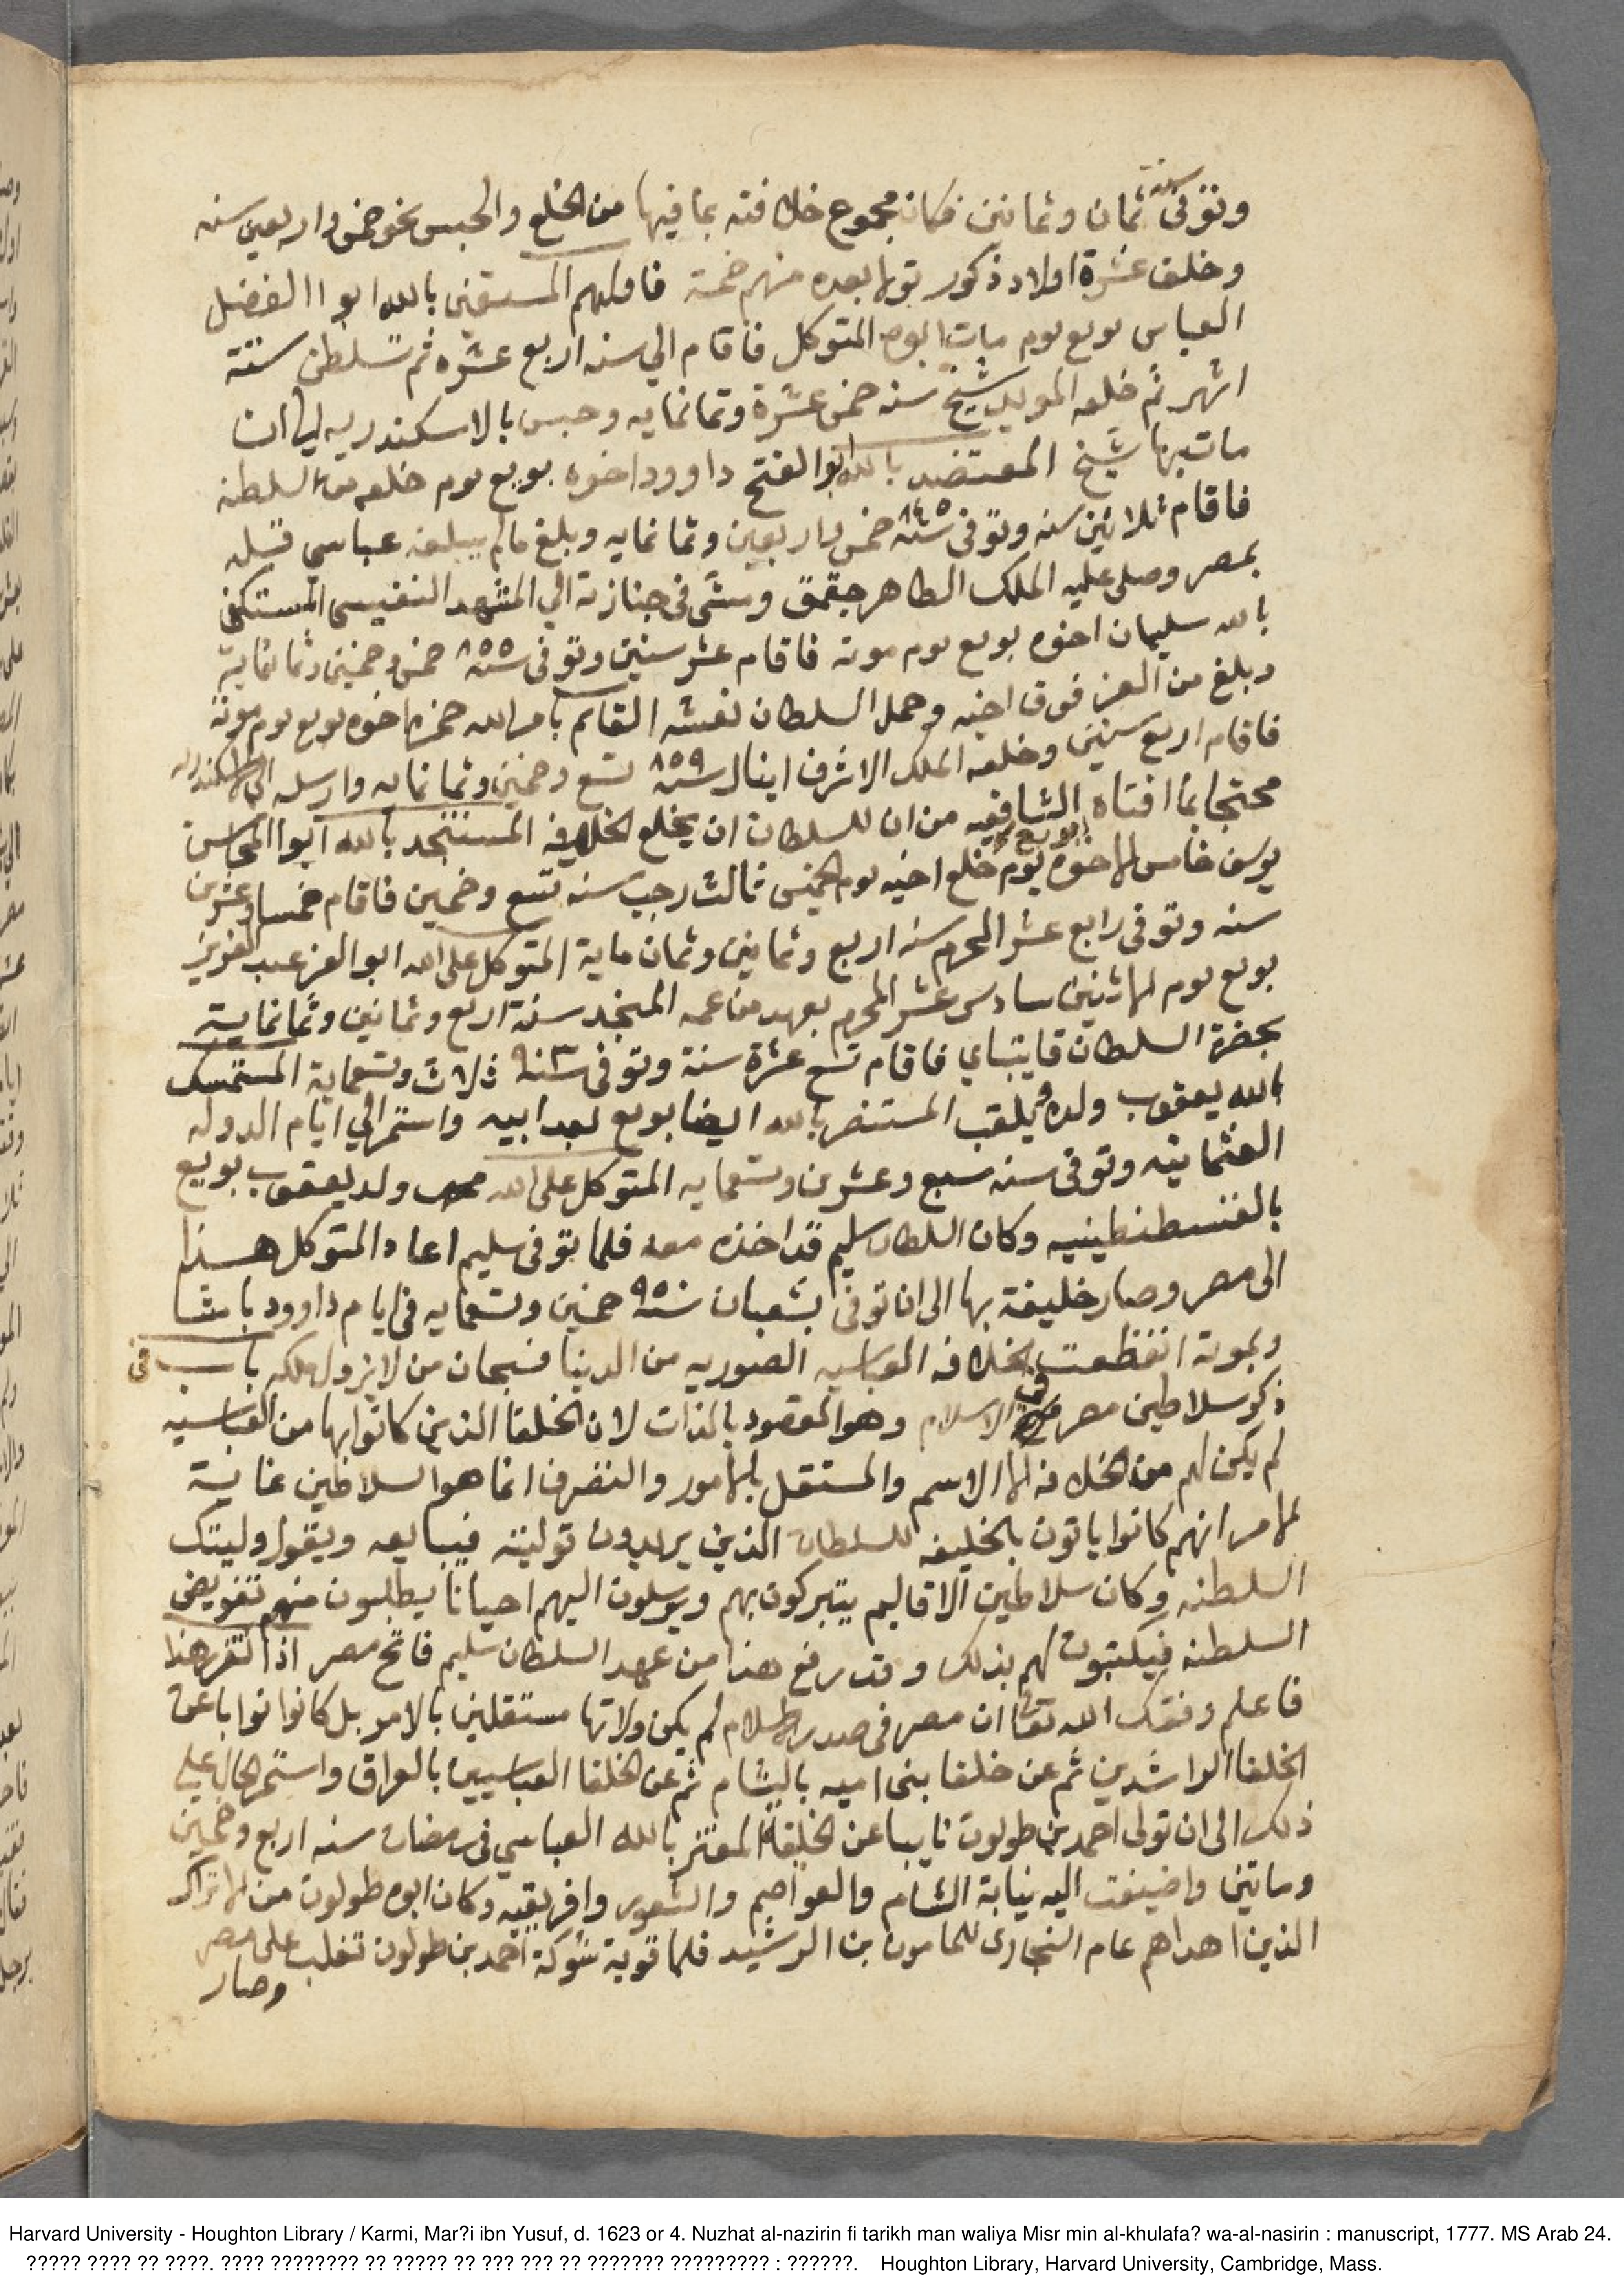 وتوفى سنة ثمان وثمانين فكان مجموع خلافته بما فيها من الخلع والحبس نحو خمس واربعين سنه
وخلف عشرة اولاد ذكور تولى بعده منهم خمسة فاولهم المستعين بالله ابو االفضل
العباس بويع يوم مات ابوه المتوكل فاقام الي سنه اربع عشره ثم تسلطن ستة
اشهر ثم خلعه المويد شيخ سنه خمس عشرة وثمانمايه وحبس بالاسكندريه الي ان
مات بها شيخ المعتضد بالله ابو الفتح داوود اخوه بويع يوم خلعه من السلطنه
فاقام ثلاثين سنه وتوفى سنة ٨٤٥ خمس واربعين وثمانمايه وبلغ مالم يبلغه عباسي قبله
بمصر وصلى عليه الملك الظاهر جقمق ومشى فى جنازته الي المشهد النفيسى المستكفى
بالله سليمان اخوه بويع يوم موته فاقام عشر سنين وتوفى سنة ٨٥٥ خمس وخمسين وثمانماية
وبلغ من العز فوق اخيه وحمل السلطان نعشه القايم بامر الله حمزه اخوه بويع يوم موته
فاقام اربع سنين وخلعه الملك الاشرف اينال سنة ٨٥٩ تسع وخمسين وثمانمايه وارسله الى الاسكندريه
محتجا بما افتاه الشافعيه من ان للسلطان ان يخلع الخليفه المستنجد بالله ابوا المحاسن
يوسف خامس الاخوه بويع يوم خلع اخيه يوم الخميس ثالث رجب سنه تسع وخمسين فاقام خمسا وعشرين
سنه وتوفى رابع عشر المحرم سنه اربع وثمانين وثمان ماية المتوكل على الله ابو العز عبد العزيز
بويع يوم الاثنين سادس عشر المحرم بعهد من عمه المنجد سنة اربع وثمانين وثمانماية
بحضرة السلطان قايتباي فاقام تسع عشرة سنة وتوفى سنة ٩٠٣ ثلاث وتسعماية المستمسك
بالله يعقوب ولده ويلقب المستنصر بالله ايضا بويع بعد ابيه واستمر الي ايام الدوله
العثمانيه وتوفى سنه سبع وعشرين وتسعمايه المتوكل على الله محمد ولد يعقوب بويع
بالقسطنطينيه وكان السلطان سليم قد اخذه معه فلما توفى سليم اعاد المتوكل هذا
الى مصر وصار خليفة بها الى ان توفى بشعبان سنة ٩٥٠ خمسين وتسعمايه فى ايام داوود باشا
وبموته انقطعت الخلافه العباسيه الصوريه من الدنيا فسبحان من لا يزول ملكه باب فى
ذكر سلاطين مصر فى الاسلام وهو المقصود بالذات لان الخلفا الذين كانوا بها من العباسيه
لم يكن لهم من الخلافه الا الاسم والمستقل بالامور والتصرف انما هو السلاطين غاية
الامر انهم كانوا ياتون بالخليفه للسلطان الذين يريدون توليته فيبايعه ويقول وليتك
السلطنه وكان سلاطين الاقاليم يتبركون بهم ويرسلون اليهم احيانا يطلبون منهم تفويض
السلطنه فيكتبون لهم بذلك وقد رفع هذا من عهد السلطان سليم فاتح مصر اذا تقرر هذا
فاعلم وفقك الله تعا ان مصر فى صدر الاسلام لم يكن ولاتها مستقلين بالامر بل كانوا نوابا عن
الخلفا الراشدين ثم عن خلفا بنى اميه بالشام ثم عن الخلفا العباسيين بالعراق واستمر الحال علي
ذلك الى ان تولى احمد بن طولون نايبا عن الخليفة المعتز بالله العباسي فى رمضان سنه اربع وخمسين
وماتين واضيفت اليه نيابة الشام والعواصم والثغور وافريقيه وكان ابوه طولون من الاتراك
الذين اهداهم عام البخارى للمامون بن الرشيد فلما قوية شوكة احمد بن طولون تغلب على مصر
وصار
Harvard University - Houghton Library / Karmi, Mar?i ibn Yusuf, d. 1623 or 4. Nuzhat al-nazirin fi tarikh man waliya Misr min al-khulafa? wa-al-nasirin : manuscript, 1777. MS Arab 24.
????? ???? ?? ????. ???? ???????? ?? ????? ?? ??? ??? ?? ??????? ????????? : ??????. Houghton Library, Harvard University, Cambridge, Mass.